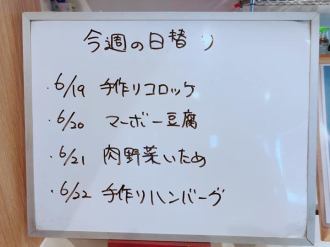 今週の日替り
・6/19 手作りコロッケ
・6/20 マーボー豆腐
・6/21 肉野菜いため
・6/22 手作りハンバーグ